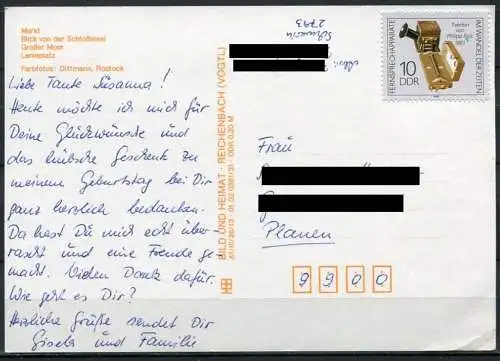 Markt
Blick von der Schloßinsel
Großer Moor
Leninplatz
Farbfotos: Dittmann, Rostock
Liebe Tante Susanna!
Heute möchte ich mich für
Deine Glückwünsche und
das hübsche Geschenk zu
meinem Geburtstag bei Dir
ganz herzlich bedanken.
Da hast Du mich echt über-
rascht und eine Freude ge-
macht. Vielen Dank dafür.
Wie geht es Dir?
Herzliche Grüße sendet Dir
Gisela und Familie
BILD UND HEIMAT · REICHENBACH (VOGTL)
Schwerin
2793
FERNSPRECHAPPARATE
IM WANDEL DER ZEITEN
Telefon
von
Philipp Reis
1861
10
DDR
Frau
Plauen
9900